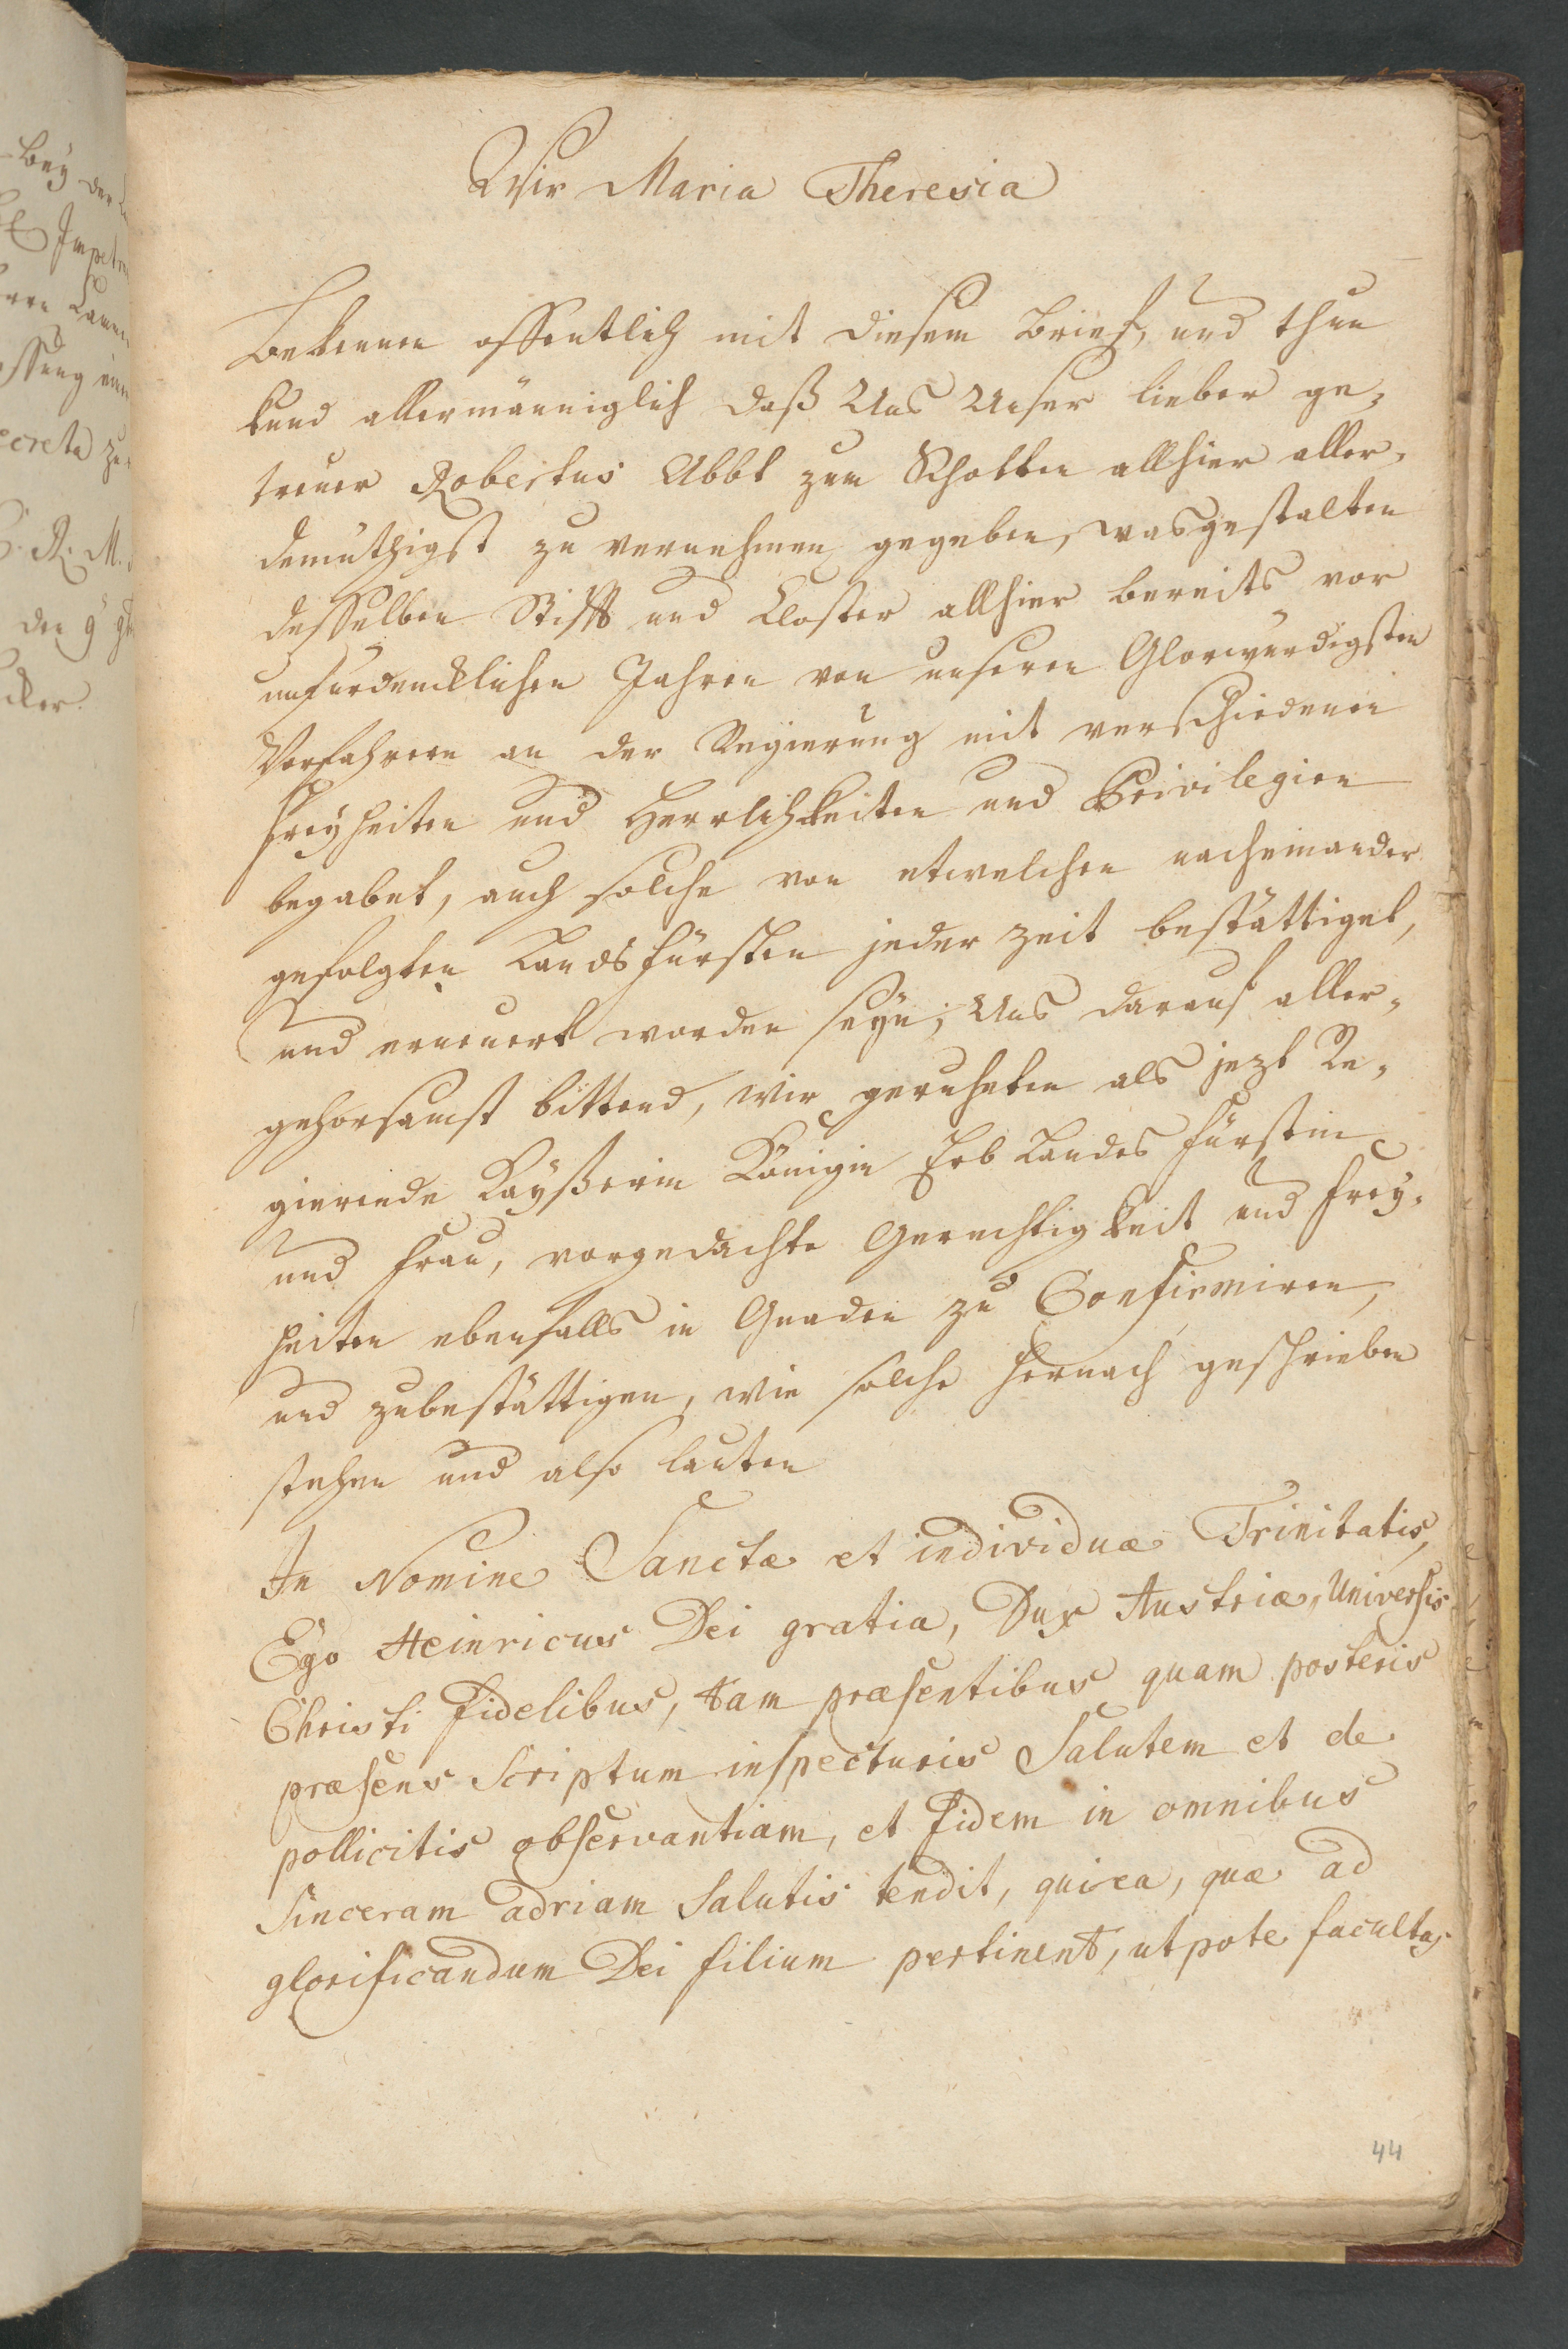 Wir Maria Theresia
Bekennen offentlich mit diesem Brief, und thun
kund allermänniglich daß Uns Unser lieber ge-
treuer Robertus Abbt zun Schotten allhier aller-
demüthigst zu vernehmen gegeben, wasgestalten
desselben Stifft und Closter allhier bereits vor
unfürdencklichen Jahren von unseren Glorwürdigsten
Vorfahrern an der Regierung mit verschiedenen
Freyheiten und Herrlichkeiten und Privilegien
begabet, auch solche von etwelchen nacheinander
gefolgten Landsfürsten jeder zeit bestättiget,
und erneuert worden seyn; Uns darauf aller-
gehorsamst bittend, wir geruheten als jezt Re-
gierende Kayßerin Königin Erb Landes Fürstin
und Frau, vorgedachte Gerechtigkeit und Frey-
heiten ebenfalls in Gnaden zu Confirmiren,
und zubestättigen, wie solche hernach geschrieben
stehen und also lauten
In Nomine Sanctæ et individuæ Trinitatis,
Ego Heinricus Dei gratia, Dux Austriæ, Universis
Christi Fidelibus, tam præsentibus quam posteris
præsens Scriptum inspecturis Salutem et de
pollicitis observantiam, et Fidem in omnibus
Sinceram adriam Salutis tendit, qui ea, quæ ad
glorificandum Dei filium pertinent, utpote facultas
44